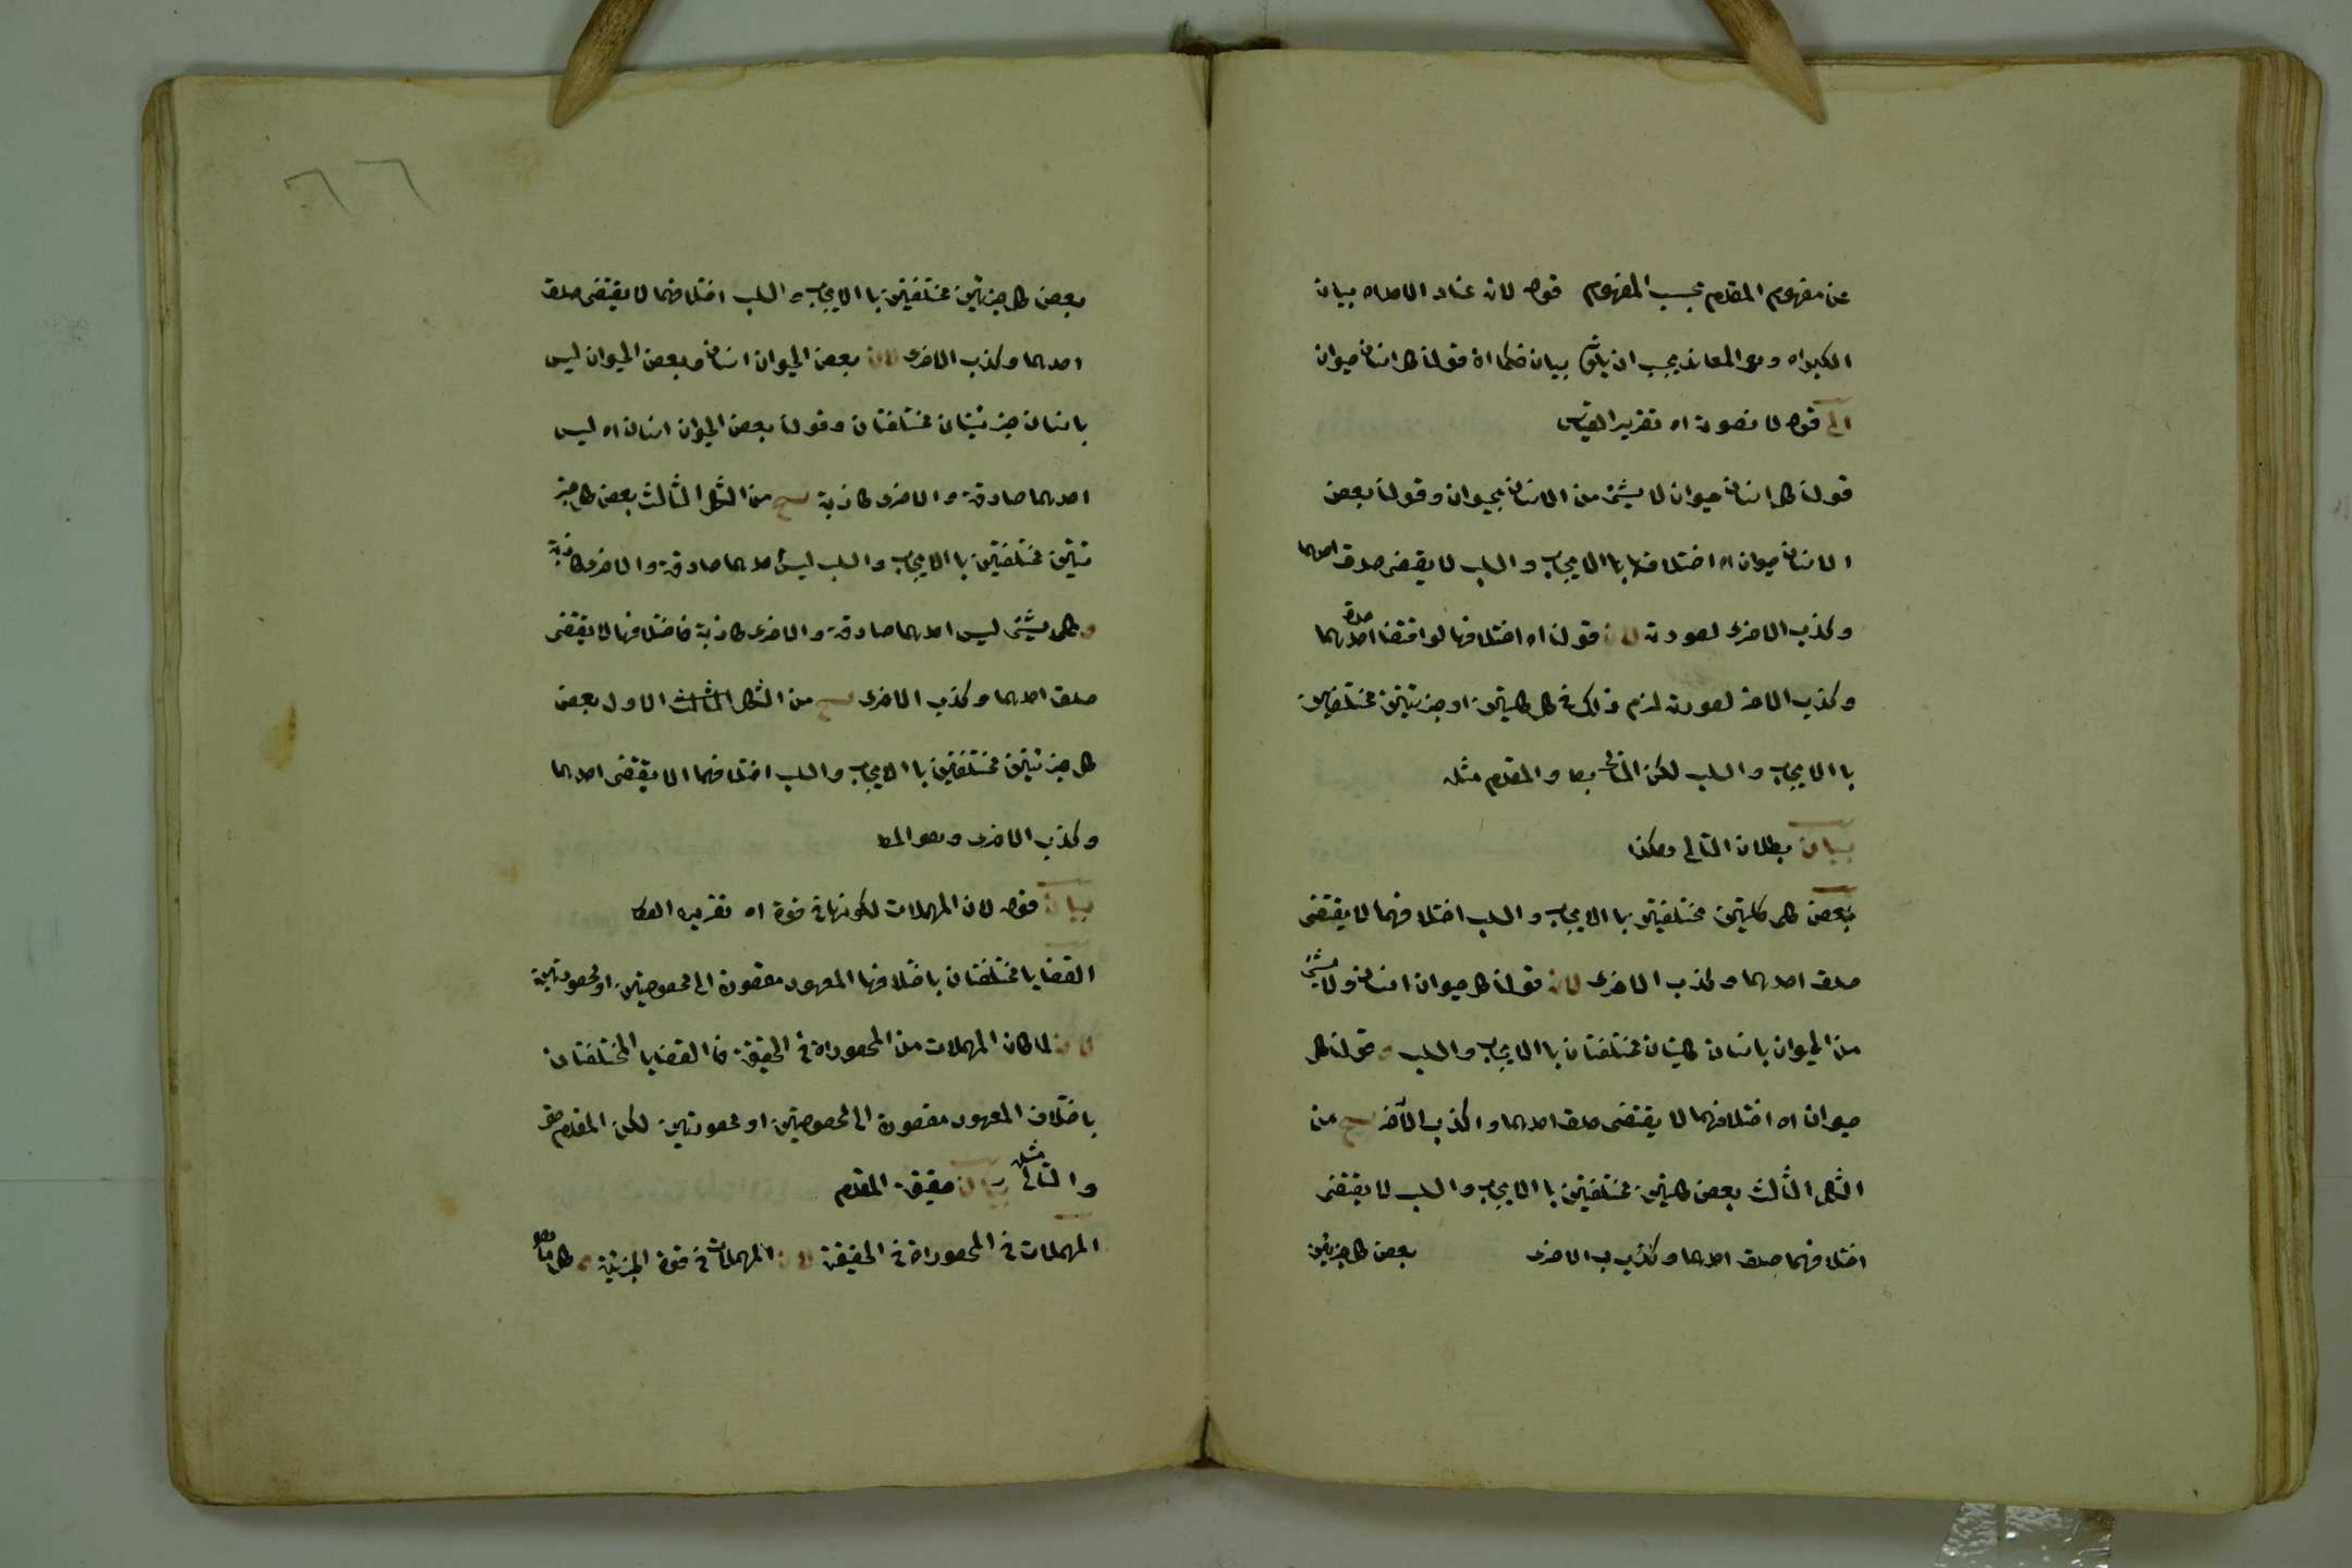 عن مفهوم المقدم بحسب المفهوم قوله لان عناد الاصداه بيان
الكبراه وهو المعاند يجب ان بيان فكما ان قولنا كل انسان حيوان
الى قوله لا بصورته اه تقرير القياس
قولنا كل انسان حيوان لا شئ من الانسان بحيوان وقولنا بعض
الانسان حيوان اه اختلافها باالايجاب والسلب لا يقتضى صدق احدهما
وكذب الاخرى لصورته لان قولنا اه اختلافها لو اقتضا صدق احدهما
وكذب الاخر لصورته لزم ذلك فى كل كليتين او جزئيتين مختلفتين
باالايجاب والسلب لكن التالى بط والمقدم مثله
بيان بطلان التالى وهكذا
بعض كل كليتين مختلفتين باالايجاب والسلب اختلافهما لا يقتضى
صدق احدهما وكذب الاخرى لان قولنا كل حيوان انسان ولا شئ
من الحيوان بانسان كليتان مختلفتان باالايجاب والسلب و قولنا كل
حيوان اه اختلافهما لا يقتضى صدق احدهما واكذب الآخر ينتج من
الشكل الثالث بعض كليتين مختلفتين باالايجاب والسلب لا يقتضى
اختلافهما صدق احدهما وكذب الاخرى بعض كل جزئيتين
بعض كل جزئيتين مختلفتين باالايجاب والسلب اختلافهما لا يقتضى صدق
احدهما وكذب الاخرى لان بعض الحيوان انسان وبعض الحيوان ليس
بانسان جزئيتان مختلفتان وقولنا بعض الحيوان انسان اه ليس
احدهما صادقة والاخرى كاذبة ينتج من الشكل الثالث بعض كل جز
ئيتين مختلفتين باالايجاب والسلب ليس احدهما صادقة والاخرى كاذبة
و كل شئ ليس احدهما صادقة والاخرى كاذبة فاختلافها لا يقتضى
صدق احدهما وكذب الاخرى ينتج من الشكل الثالث الاول بعض
كل جزئيتين مختلفتين باالايجاب والسلب اختلافهما لا يقتضى احدهما
وكذب الاخرى وهو المط
بيان قوله لان المهملات لكونها فى قوة اه تقريره هكذا
القضايا مختلفتان باختلافها المعهود مقصورة الى مخصوصتين او محصورتين
لان لما كان المهملات من المحصوراة فى الحقيقة فا القضايا المختلفتان
باختلاف المعهود مقصورة الى مخصوصتين او محصورتين لكن المقدم حق
والتالى مثله بيان حقيقة المقدم
المهملات فى المحصوراة فى الحقيقة لان المهملات فى قوة الجزئية و كل ما هو